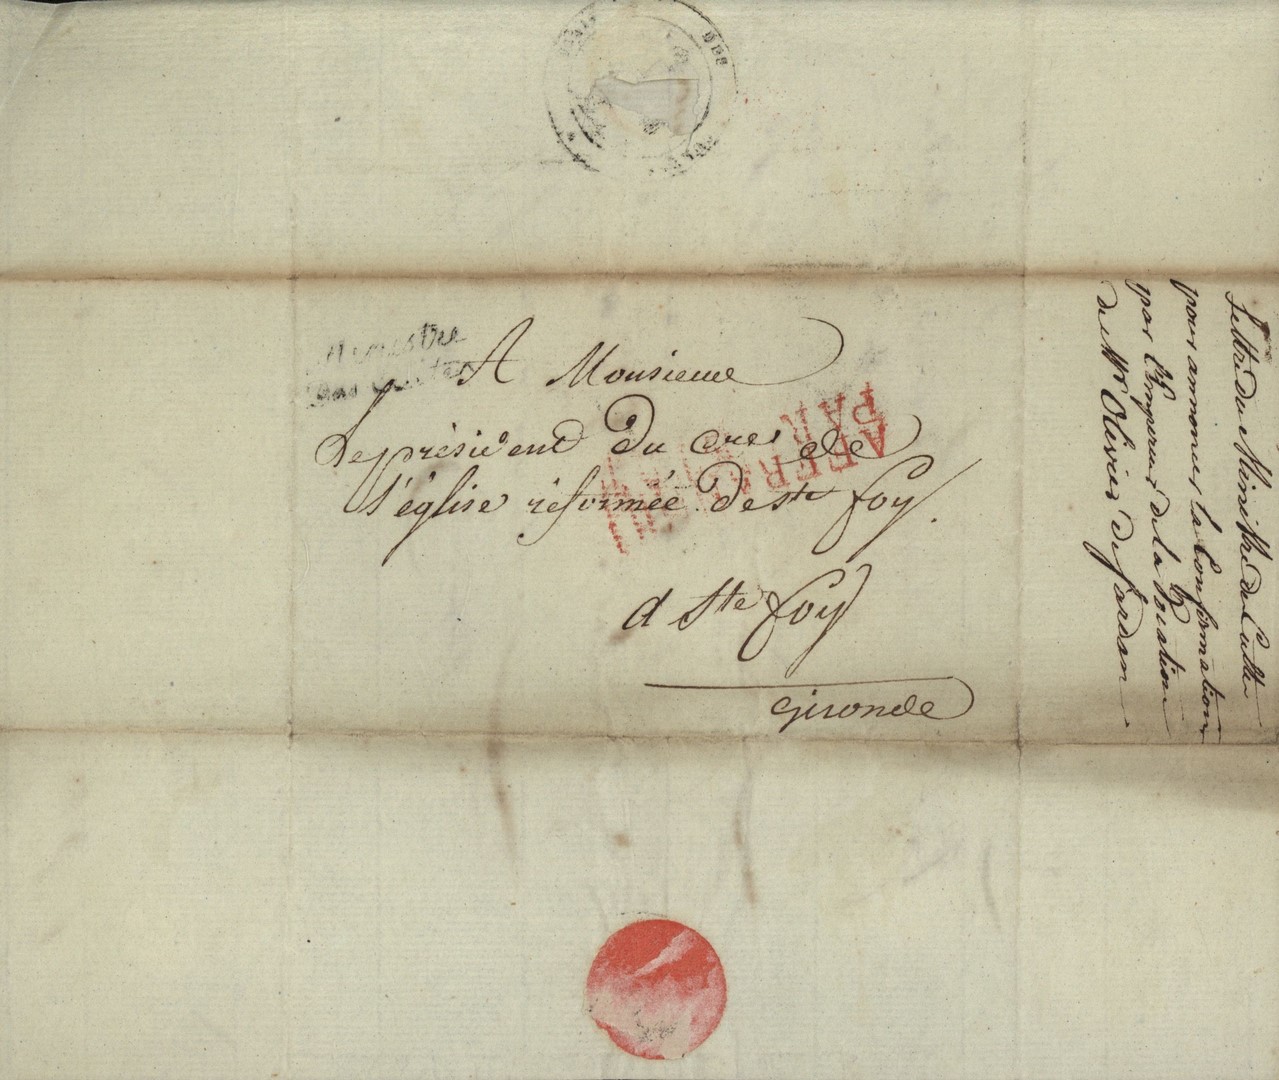 Ministre
des Cultes
A Monsieur
Le président du Cres de
l'église réformée de Ste foy.
a Ste foy
Gironde
AFFRANCHI
PAR
Lettre du Ministre du Culte
pour annoncer la Confirmation
par l'Empereur de la vocation
de Mr Olivier de Sardan